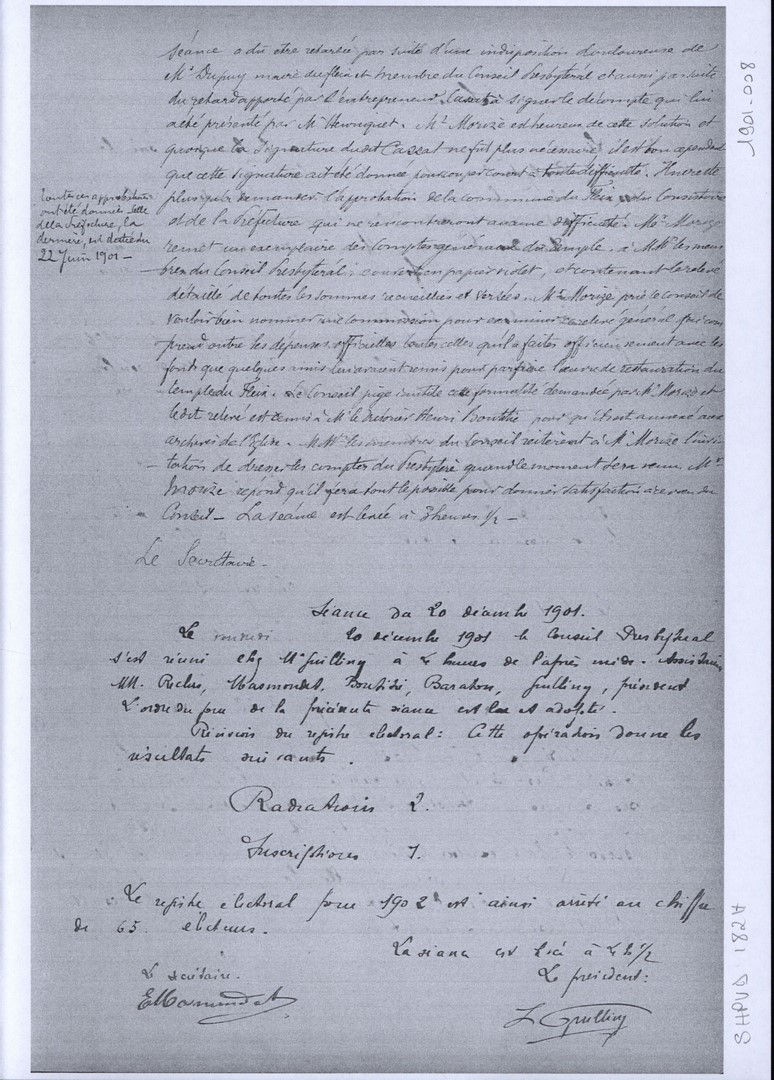 séance a dû etre retardée par suite d'une indisposition douloureuse de
Mr Dupuy maire du fleix et membre du Conseil Presbytéral et aussi par suite
du retard apporté par l'entrepreneur Cassat à signer le décompte qui lui
a été présenté par Mr Henriquet. Mr Morize est heureux de cette solution et
quoique la signature dudit Cassat ne fut plus nécessaire il est bon cependant
que cette signature ait été donnée pour couper court à toute difficulté. Il ne reste
plus qu'à demander l'approbation de la commune du Fleix, du Consistoire
et de la Préfecture qui ne rencontreront aucune difficulté. Mr Morize
remet un exemplaire des Comptes généraux du Temple à MM. les mem
bres du Conseil Presbytéral, couvert en papier violet, et contenant le relevé
détaillé de toutes les sommes recueillies et versées. Mr Morize prie le conseil de
vouloir bien nommer une commission pour examiner ce relevé général qui com
prend outre les dépenses officielles toutes celles qu'il a faites officieusement avec les
fonds que quelques amis lui avaient remis pour parfaire l'œuvre de restauration du
temple du Fleix. Le Conseil juge inutile cette formalité demandée par Mr Morize et
ledit relevé est remis à Mr le trésorier Henri Bonthié pour qu'il soit annexé aux
archives de l'Eglise. MM. les membres du Conseil réitèrent à Mr Morize l'invi
tation de dresser les comptes du Presbytère quand le moment sera venu. Mr
Morize répond qu'il fera tout le possible pour donner satisfaction à ce vœu du
Conseil — La séance est levée à 3 heures 1/2 —
toutes ces approbations
ont été données celle
de la Préfecture, la
dernière, est datée du
22 Juin 1901 —
Le Secrétaire.
Séance du 20 décembre 1901.
Le vendredi 20 décembre 1901 le Conseil Presbytéral
s'est réuni chez Mr Guilling à 4 heures de l'après midi. Assistaient
MM. Reclus, Masmondet, Bouthié, Baraton, Guilling, président
L'ordre du jour de la précédente séance est lu et adopté.
Révision du registre électoral : Cette opération donne les
résultats suivants.
Radiations 2.
Inscriptions 7.
Le registre electoral pour 1902 est ainsi arrêté au chiffre
de 65 électeurs.
La séance est levée à 4 h 1/2
Le secrétaire.
Le president :
EMasmondet
L Guilling
1901-008
SHPVD 182A